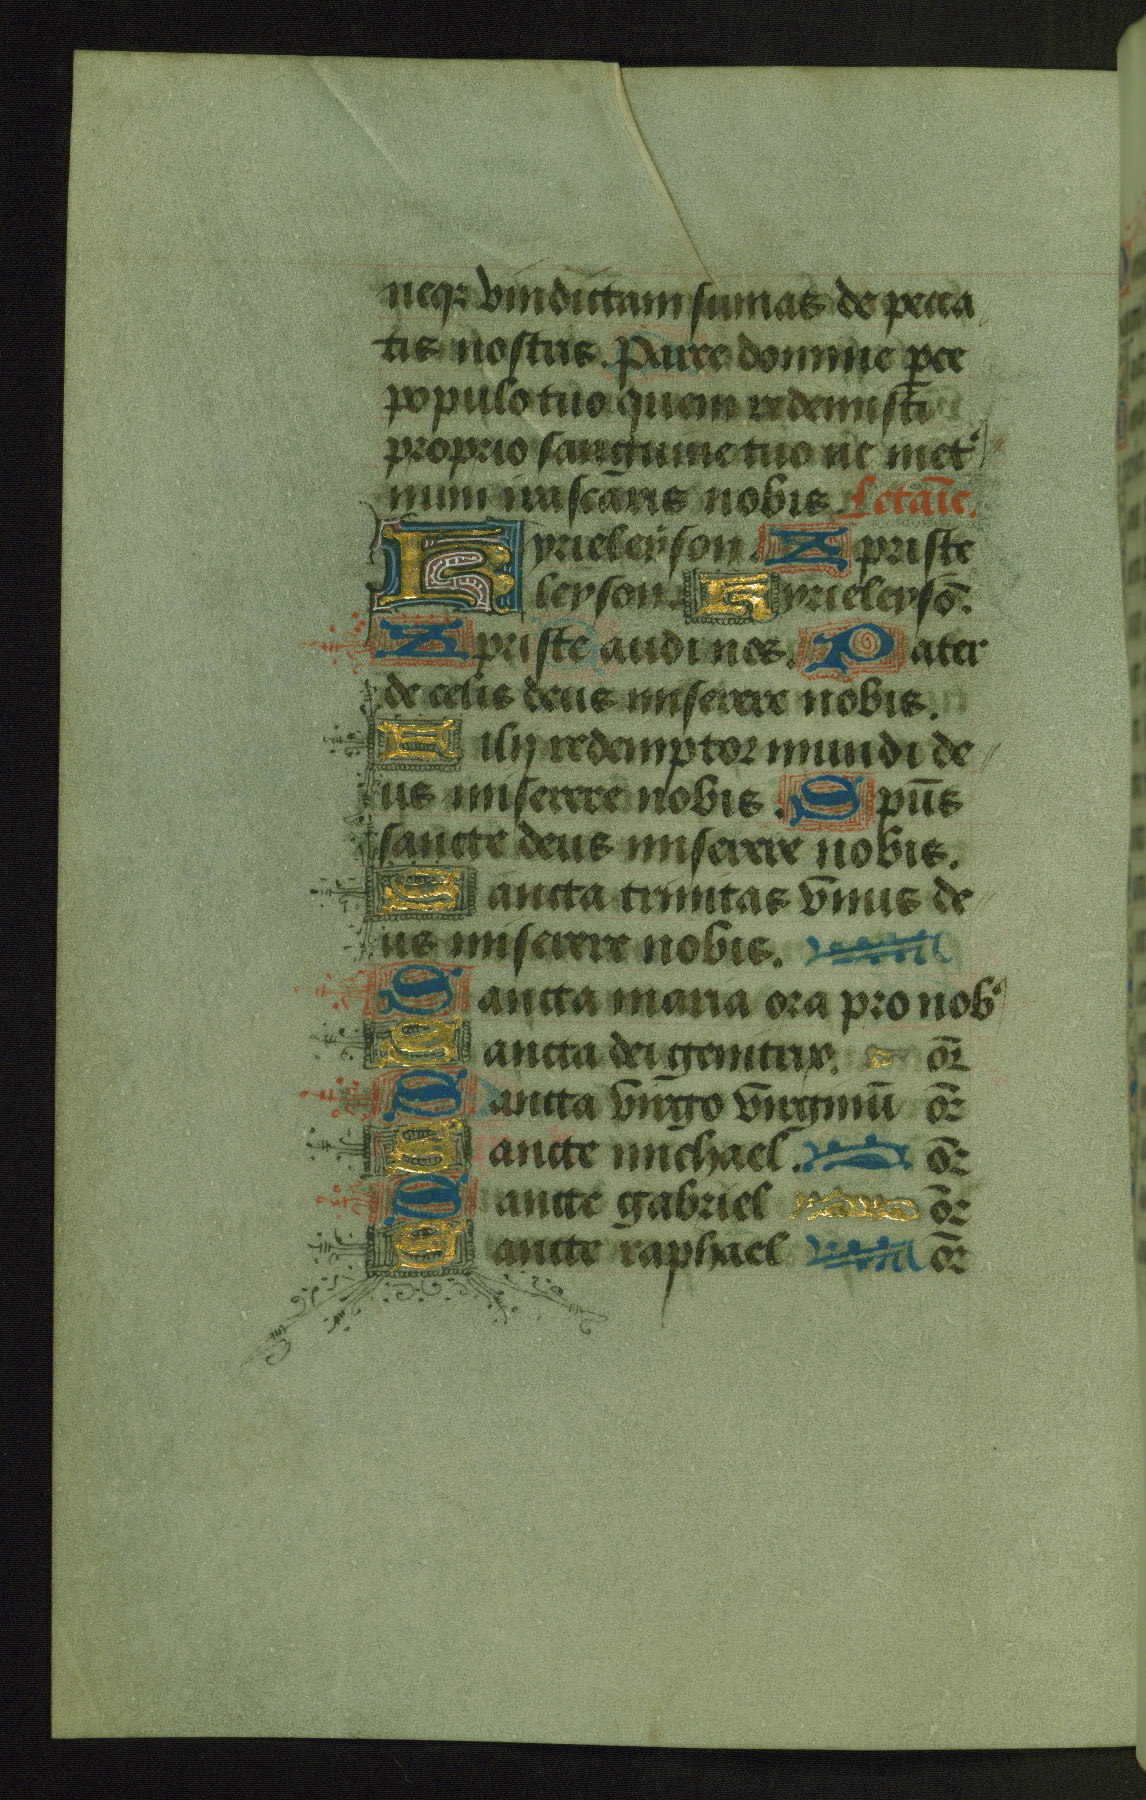 neqꝫ vindictam sumas de pecca
tis nostris. Parce domine ꝑce
populo tuo quem redemisti
proprio sanguine tuo ne inet̾
num irascaris nobis. Letaīe.
Kyrieleyson. Xpriste
leyson. Kyrieleysō.
Xpriste audi nos. Pater
de celis deus miserere nobis.
Filij redemptor mundi de
us miserere nobis. Spūs
sancte deus miserere nobis.
Sancta trinitas vnus de
us miserere nobis.
Sancta maria ora pro nob̾
Sancta dei genitrix. oꝛ̄
Sancta virgo virginū oꝛ̄
Sancte michael. oꝛ̄
Sancte gabriel oꝛ̄
Sancte raphael oꝛ̄